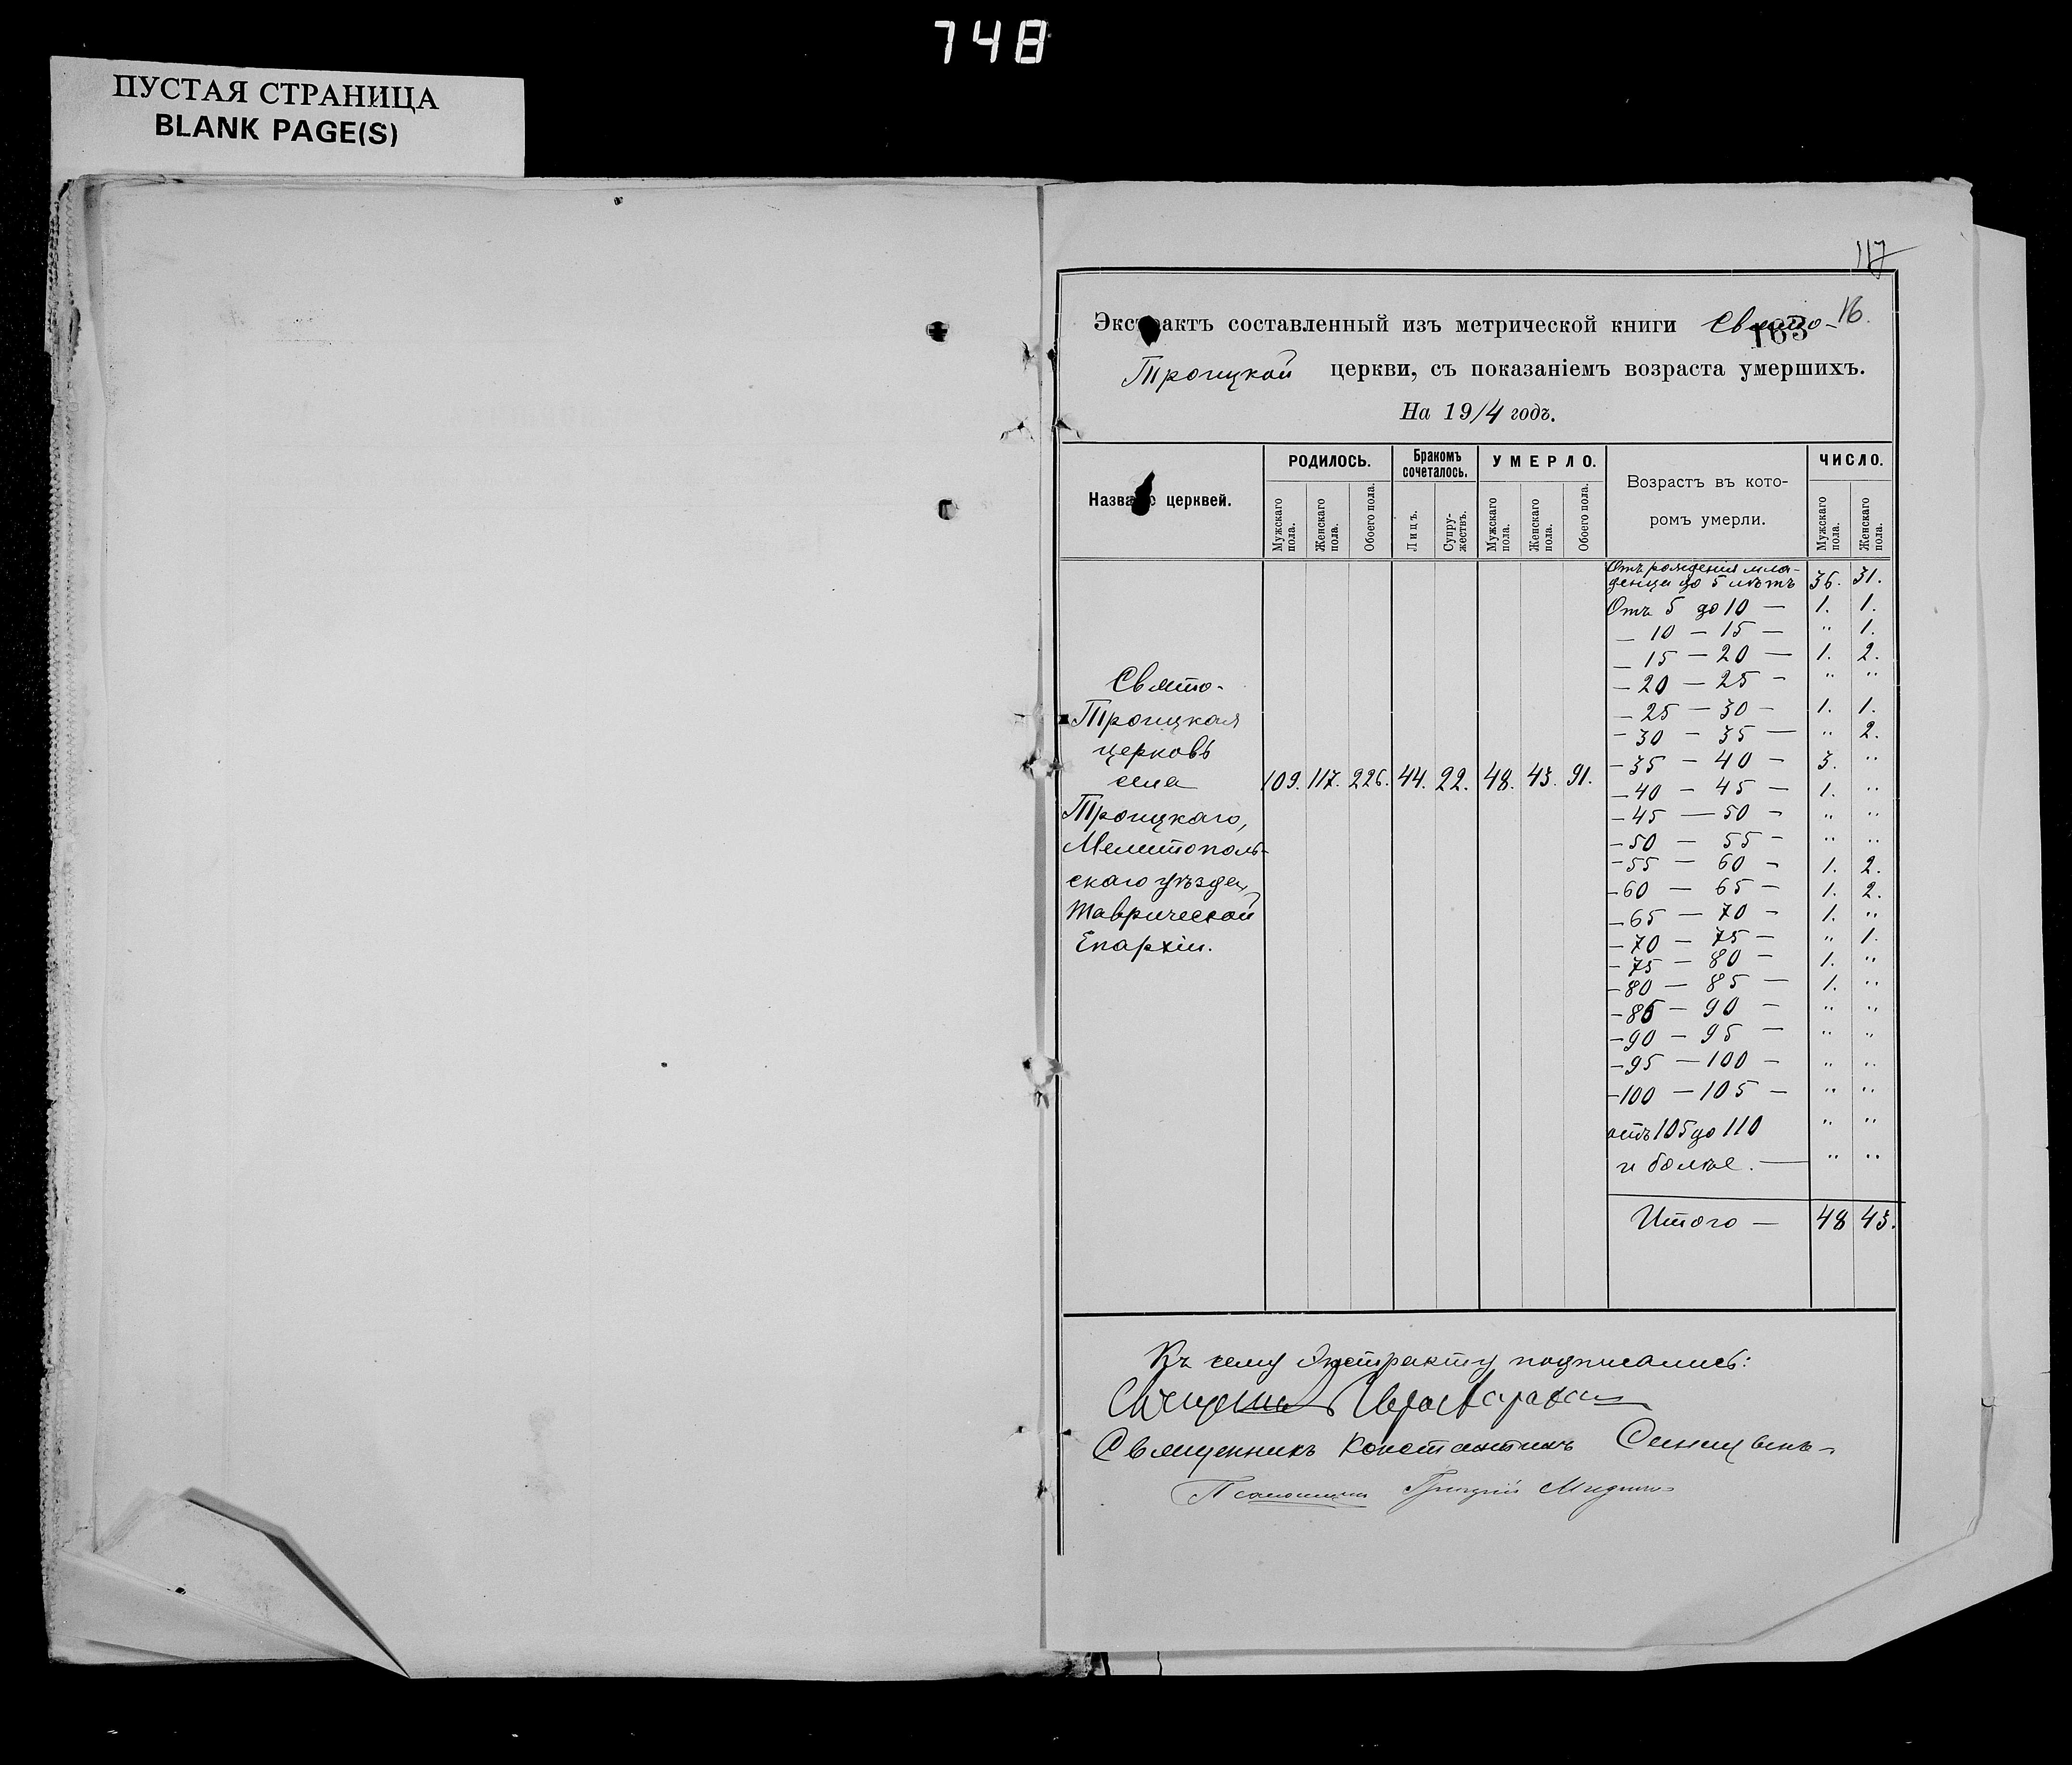 748
ПУСТАЯ СТРАНИЦА
BLANK PAGE(S)
117
16.
163
Экстрактъ составленный изъ метрической книги Свято-
Троицкой церкви, съ показаніемъ возраста умершихъ.
На 1914 годъ.
Названіе церквей.
РОДИЛОСЬ.
Мужскаго пола.
Женскаго пола.
Обоего пола.
Бракомъ сочеталось.
Лицъ.
Супружествъ.
УМЕРЛО.
Мужскаго пола.
Женскаго пола.
Обоего пола.
Возрастъ въ кото-
ромъ умерли.
ЧИСЛО.
Мужскаго пола.
Женскаго пола.
Свято-
Троицкая
церковь
села
Троицкаго,
Мелитополь-
скаго уѣзда,
Таврической
Епархіи.
109. 117. 226. 44. 22. 48. 43. 91.
Отъ рожденія мла-
денца до 5 лѣтъ 36. 31.
Отъ 5 до 10 — 1. 1.
— 10 — 15 — " 1.
— 15 — 20 — 1. 2.
— 20 — 25 — " "
— 25 — 30 — 1. 1.
— 30 — 35 — " 2.
— 35 — 40 — 3. "
— 40 — 45 — 1. "
— 45 — 50 — " "
— 50 — 55 — " "
— 55 — 60 — 1. 2.
— 60 — 65 — 1. 2.
— 65 — 70 — 1. "
— 70 — 75 — " 1.
— 75 — 80 — 1. "
— 80 — 85 — 1. "
— 85 — 90 — " "
— 90 — 95 — " "
— 95 — 100 — " "
— 100 — 105 — " "
отъ 105 до 110 " "
и болѣе. — " "
Итого — 48 43.
Къ сему экстракту подписались:
Священникъ Константинъ
Псаломщикъ Григорій